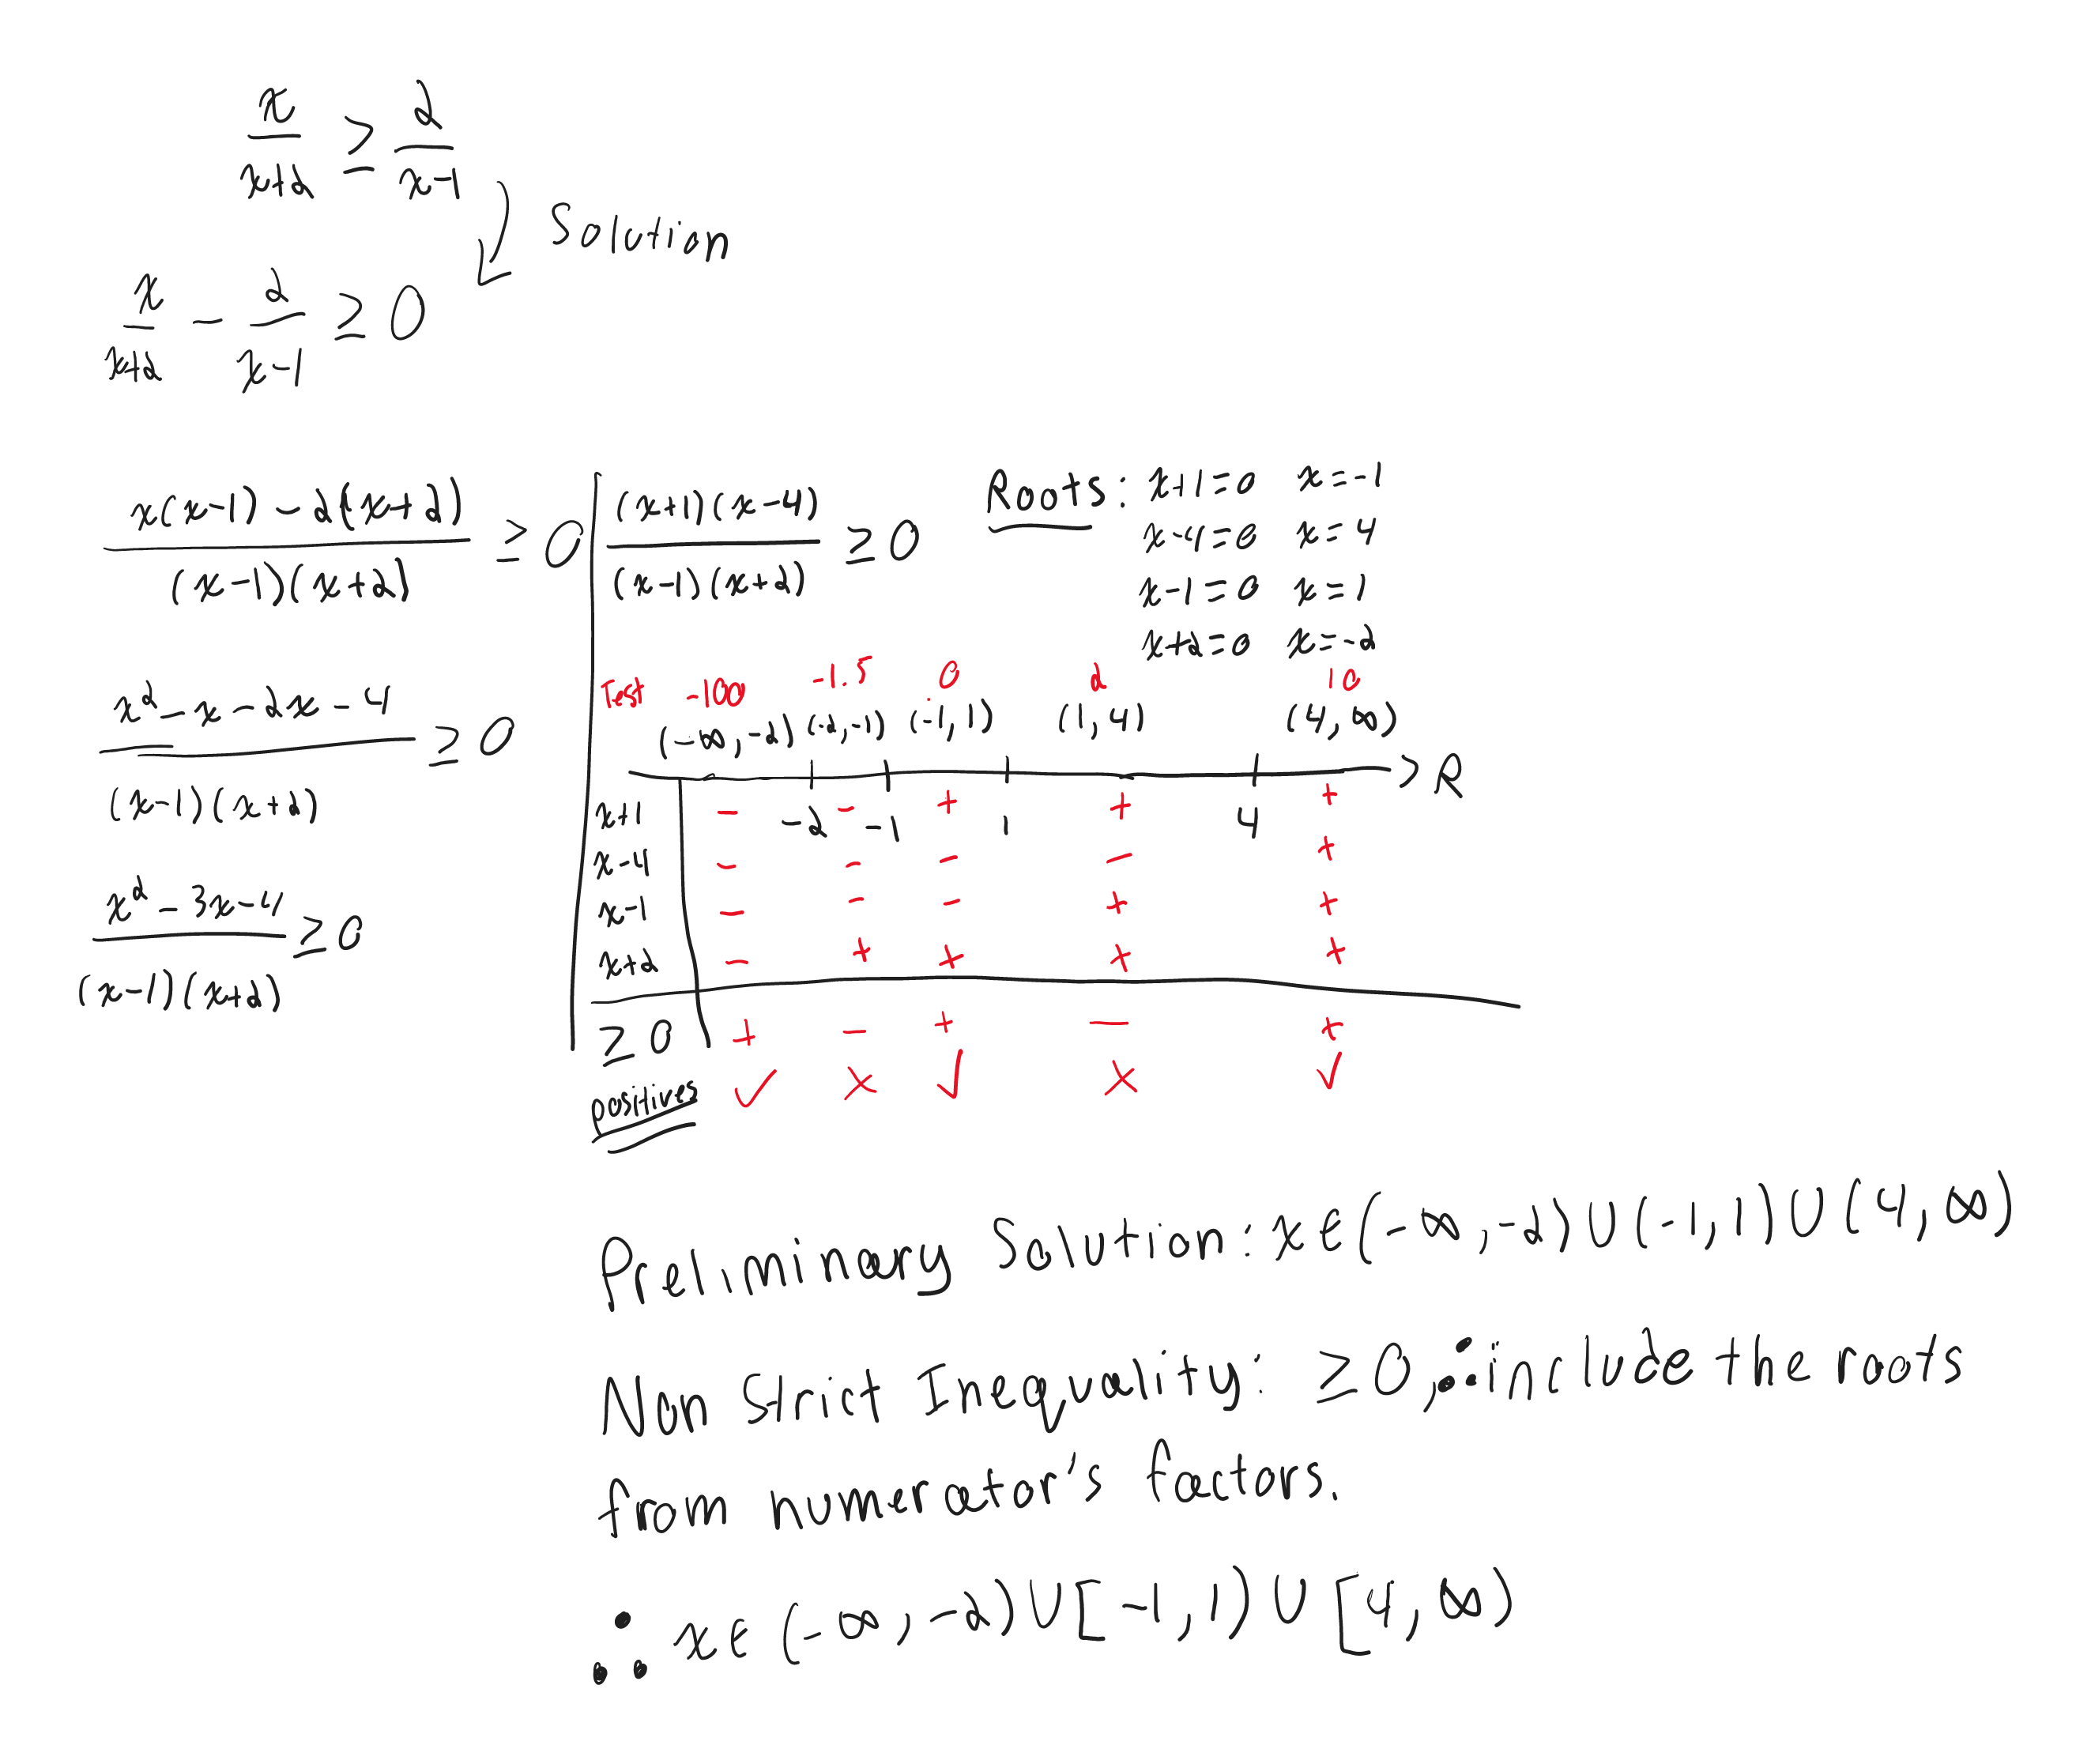 x/(x+2) ≥ 2/(x-1)
Solution
x/(x+2) - 2/(x-1) ≥ 0
(x(x-1) - 2(x+2))/((x-1)(x+2)) ≥ 0
(x² - x - 2x - 4)/((x-1)(x+2)) ≥ 0
(x² - 3x - 4)/((x-1)(x+2)) ≥ 0
((x+1)(x-4))/((x-1)(x+2)) ≥ 0
Roots: x+1=0 x=-1
x-4=0 x=4
x-1=0 x=1
x+2=0 x=-2
Test -100 -1.5 0 2 10
(-∞,-2) (-2,-1) (-1,1) (1,4) (4,∞)
R
-2 -1 1 4
x+1 - - + + +
x-4 - - - - +
x-1 - - - + +
x+2 - + + + +
≥ 0 + - + - +
positives ✓ × ✓ × ✓
Preliminary Solution: x ∈ (-∞,-2) ∪ (-1,1) ∪ (4,∞)
Non Strict Inequality: ≥0, ∴ include the roots
from numerator's factors.
∴ x ∈ (-∞,-2) ∪ [-1,1) ∪ [4,∞)